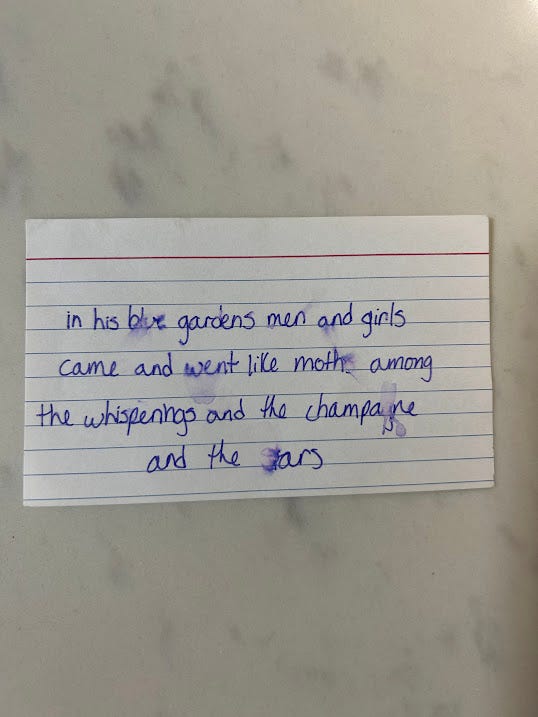 in his blue gardens men and girls
came and went like moths among
the whisperings and the champagne
and the stars